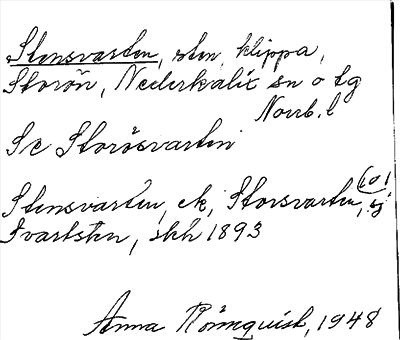 Stensvarten, sten, klippa,
Storön, Nederkalix sn o tg
Norrb. l
Se Storösvarten
Stensvarten, ek, Storsvarten, (о) ej
Svartsten, skk 1893
Anna Rönnquist, 1948